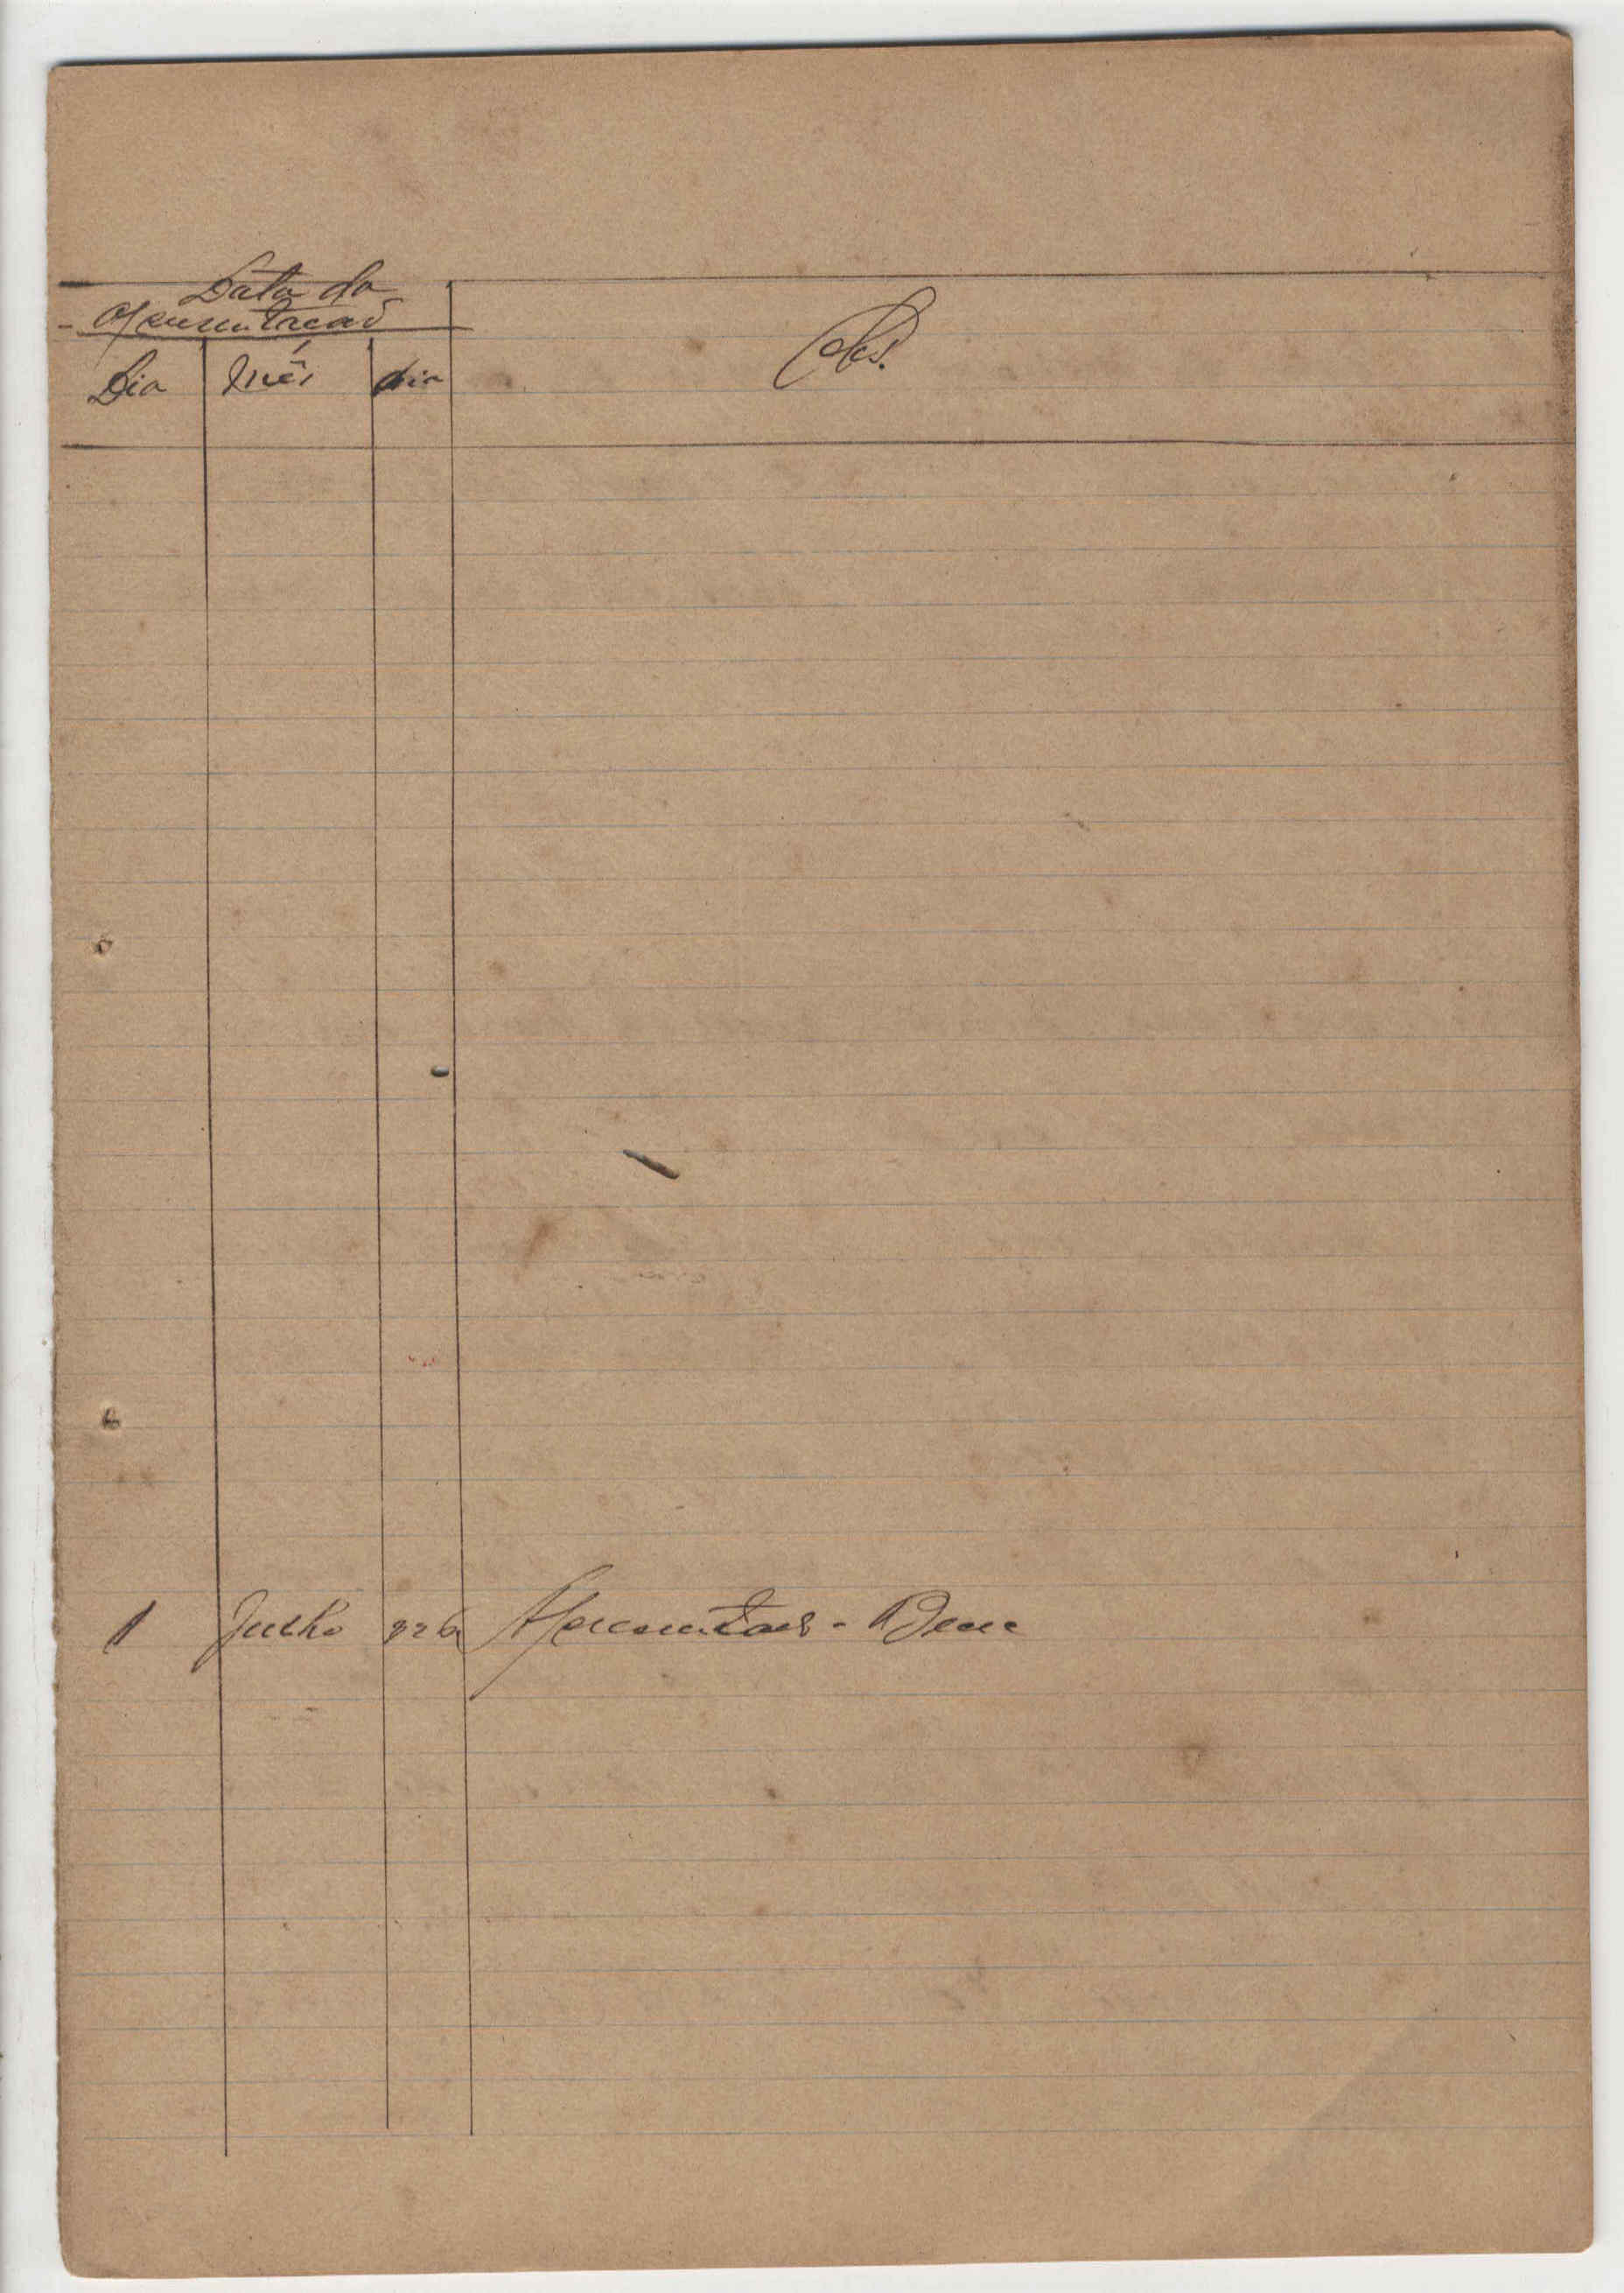 Data da
Apresentação
Dia Mês dia
Obs.
1 Julho 926 Apresentou-